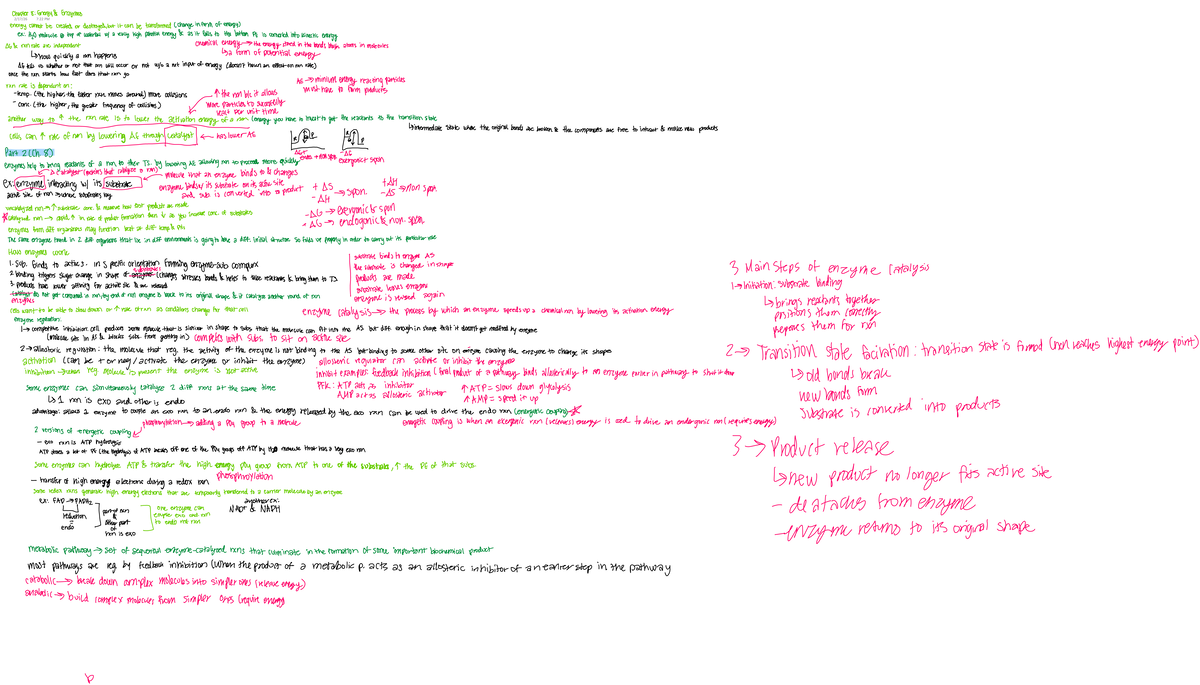 Chapter 8: Energy & Enzymes
energy cannot be created or destroyed, but it can be transformed (change in form of energy)
ex: H2O molecule @ top of waterfall w a really high potential energy & as it falls to the bottom PE is converted into kinetic energy
chemical energy → the energy stored in the bonds btwn atoms in molecules
↳ a form of potential energy
ΔG & rxn rate are independent
↳ how quickly a rxn happens
ΔG tells us whether or not that rxn will occur or not w/o a net input of energy (doesn't have an effect on rxn rate)
once the rxn starts how fast does that rxn go
AE → minimum energy reacting particles
must have to form products
rxn rate is dependent on:
- temp. (the higher, the faster molc moves around) more collisions
- conc. (the higher, the greater frequency of collisions)
↑ the rxn b/c it allows
more particles to successfully
react per unit time
another way to ↑ the rxn rate is to lower the activation energy of a rxn (energy you have to invest to get the reactants to the transition state
↳ intermediate state where the original bonds are broken & the components are free to interact & make new products
cells can ↑ rate of rxn by lowering AE through catalyst ← has lower AE
ΔG+ endo + non spon
-ΔG exergonic + spon
Part 2 (Ch. 8)
enzymes help to bring reactants of a rxn to their TS. by lowering AE allowing rxn to proceed more quickly
→ a catalyst (proteins that catalyze a rxn)
→ molecule that an enzyme binds to & changes
ex: enzyme interacting w/ its substrate
enzyme binds w/ its substrate on its active site
and sub is converted into a product
active site of rxn where substrates bind
+ΔS
-ΔH → spon.
+ΔH
-ΔS → non spon
-ΔG → exergonic & spon
+ΔG → endogonic & non. spon
uncatalyzed rxn → ↑ substrate conc & measure how fast products are made
enzymes from diff organisms may function best at diff temp & pH
The same enzyme found in 2 diff organisms that live in diff environments is going to have a diff. initial structure so folds up properly in order to carry out its particular role
How enzymes work:
1. Sub. binds to active s. in specific orientation forming enzyme-sub complex
2. binding triggers slight change in shape of enzyme (change) stresses bonds & helps to seize reactants & bring them to TS
substrates
3. products have lower affinity for active site & are released
substrate binds to enzyme AS
the substrate is changed in shape
products are made
substrate leaves enzyme
enzyme is reused again
- catalyst do not get consumed in rxn by end of rxn enzyme is back to its original shape & it catalyze another round of rxn
enzymes
cells want to be able to slow down or ↑ rate of rxn as conditions change for that rxn
enzyme catalysis → the process by which an enzyme speeds up a chemical rxn by lowering in activation energy
enzyme regulation:
1 → competitive inhibition cell produces some molecule that is similar in shape to subs that the molecule can fit into the AS but diff enough in shape that it doesn't get modified by enzyme
(molecule sits in AS & blocks subs from getting in) competes with subs to sit on active site
2 → allosteric regulation: the molecule that reg. the activity of the enzyme is not binding to the AS but binding to some other site on enzyme causing the enzyme to change its shape
activation (can be + or neg / activate the enzyme or inhibit the enzyme) allosteric regulator can activate or inhibit the enzymes
inhibition → when reg molecule is present the enzyme is not active
inhibit example: feedback inhibition (final product of a pathway binds allosterically to an enzyme earlier in pathway to shut it down
PFK: ATP acts as inhibitor
AMP acts as allosteric activator
↑ ATP = slows down glycolysis
↑ AMP = speed it up
some enzymes can simultaneously catalyze 2 diff rxns at the same time
↳ 1 rxn is exo and other is endo
advantage: allows a enzyme to couple an exo rxn to an endo rxn & the energy released by the exo rxn can be used to drive the endo rxn (energetic coupling)
phosphorylation → adding a PO4 group to a molecule
energetic coupling is when an exergonic rxn (releases) energy is used to drive an endergonic rxn (requires energy)
2 versions of energetic coupling
- exo rxn is ATP hydrolysis
ATP does a lot of PE (the hydrolysis of ATP breaks off one of the PO4 group off ATP by H2O molecule that has a big exo rxn
some enzymes can hydrolyze ATP & transfer the high energy PO4 group from ATP to one of the substrate, ↑ the PE of that subs.
phosphorylation
- transfer of high energy electrons during a redox rxn
some redox rxns generate high energy electrons that are temporarily transferred to a carrier molecule by an enzyme
ex: FAD → FADH2
reduction
=
endo
part of rxn
&
other part
of
rxn is exo
one enzyme can
couple exo and rxn
to endo red rxn
another ex:
NAD+ & NADH
metabolic pathway → set of sequential enzyme-catalyzed rxns that culminate in the formation of some important biochemical product
most pathways are reg by feedback inhibition (when the product of a metabolic p. acts as an allosteric inhibitor of an earlier step in the pathway
catabolic → break down complex molecules into simpler ones (release energy)
anabolic → build complex molecules from simpler ones (require energy
b
3 Main Steps of enzyme catalysis
1 → Initiation: substrate binding
↳ brings reactants together
positions them correctly
prepares them for rxn
2 → Transition state facilitation: transition state is formed (rxn reaches highest energy point)
↳ old bonds break
new bonds form
substrate is converted into products
3 → Product release
↳ new product no longer fits active site
- detaches from enzyme
- enzyme returns to its original shape